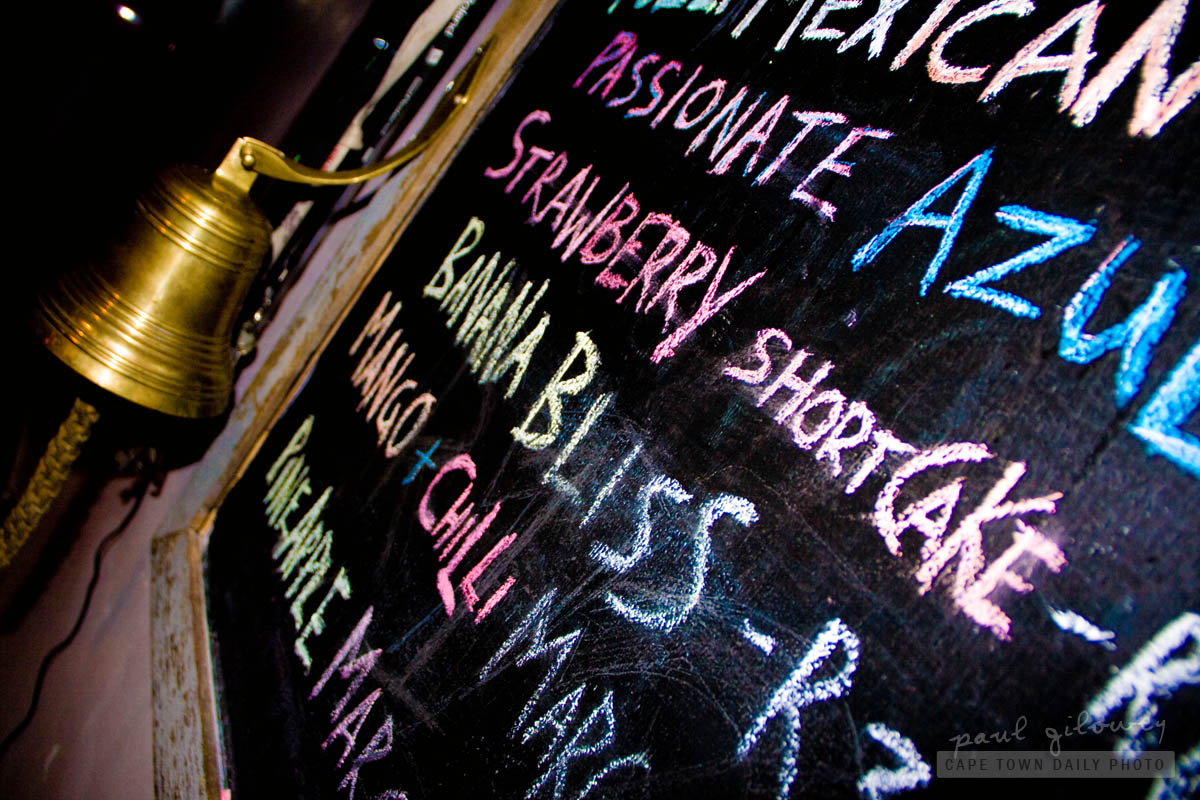 MEXICAN
PASSIONATE AZUL
STRAWBERRY SHORTCAKE - R
BANANA BLISS - R2
MANGO + CHILLI MARG
PINEAPPLE MAR
paul gilowey
CAPE TOWN DAILY PHOTO